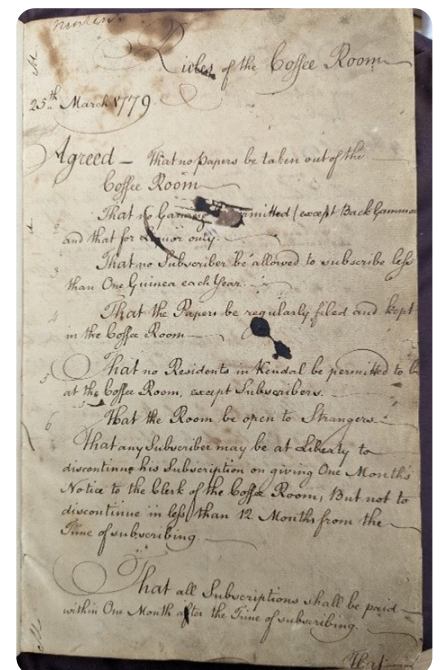 Rules of the Coffee Room
25th March 1779
Agreed – That no Papers be taken out of the
Coffee Room
That no Gaming permitted (except Back Gammon
and that for Liquor only.
3 That no Subscriber be allowed to subscribe less
than One Guinea each Year.
4 That the Papers be regularly filed and kept
in the Coffee Room
5 That no Residents in Kendal be permitted to be
at the Coffee Room, except Subscribers.
6 That the Room be open to Strangers
That any Subscriber may be at Liberty to
discontinue his Subscription on giving One Month's
Notice to the Clerk of the Coffee Room, But not to
discontinue in less than 12 Months from the
Time of subscribing
That all Subscriptions shall be paid
within One Month after the Time of subscribing.
That